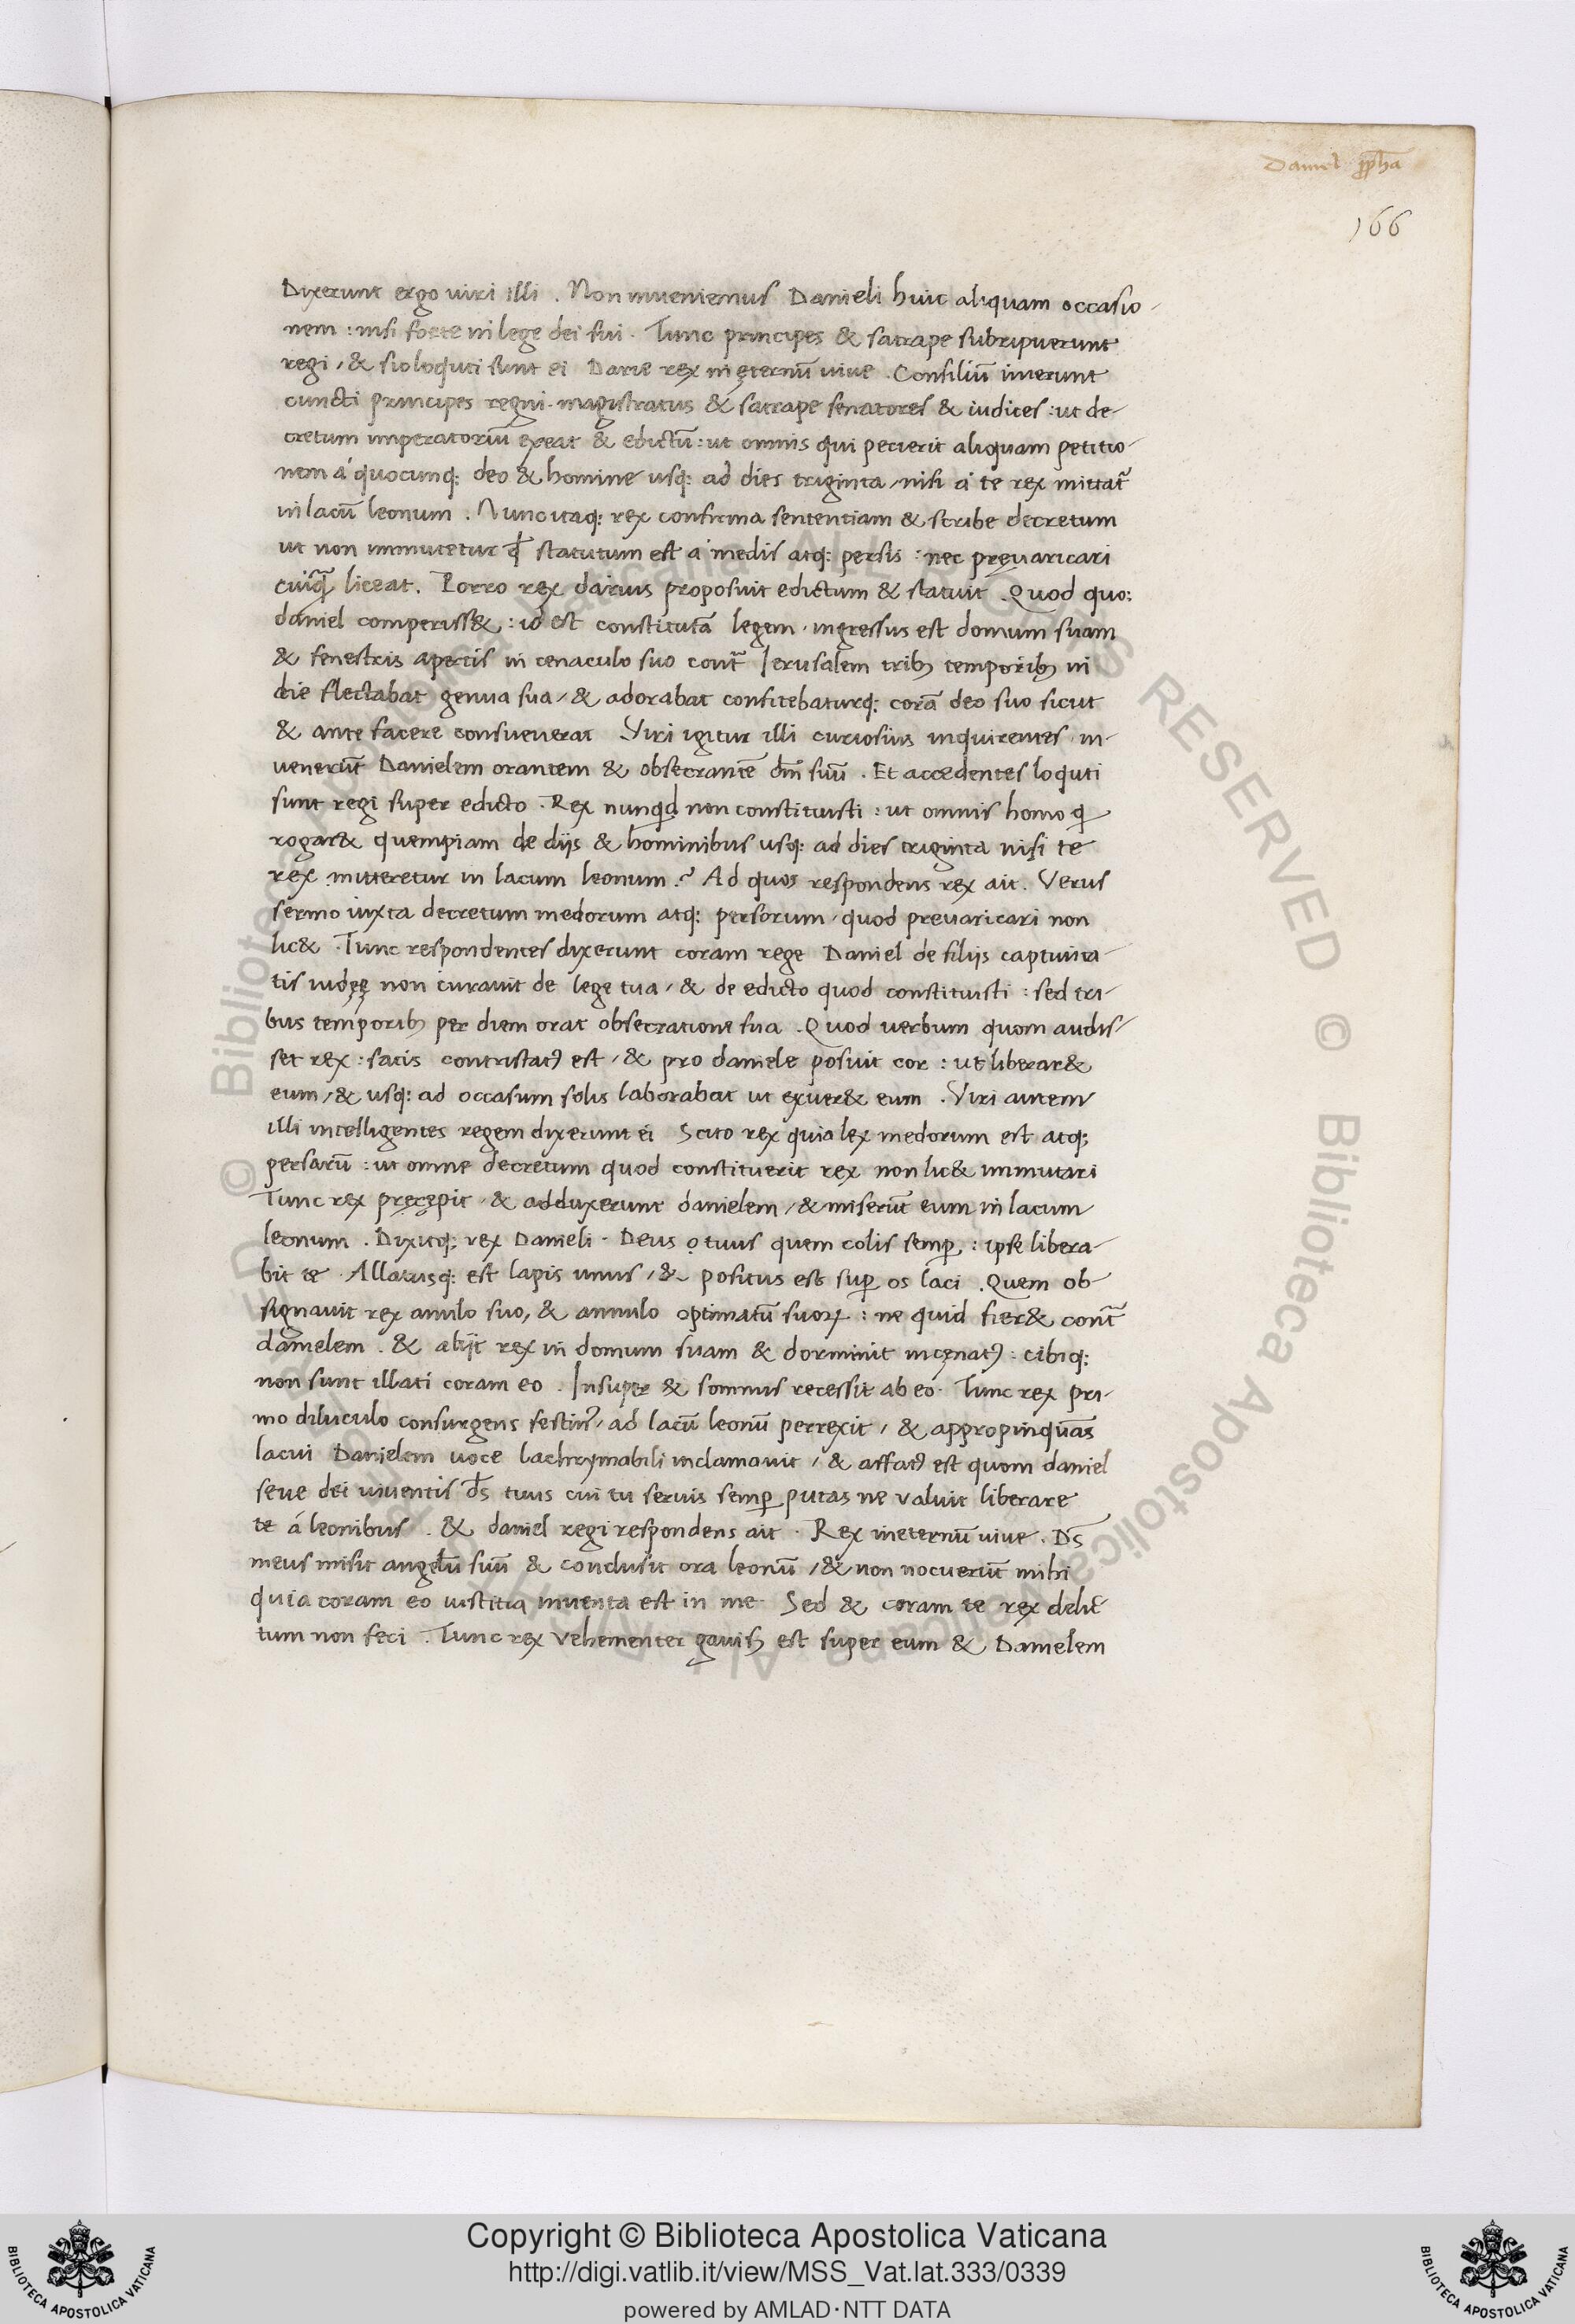 Daniel ꝓph̄a
166
Dixerunt ergo uiri illi . Non inueniemus Danieli huic aliquam occasio-
nem : nisi forte in lege dei sui . Tunc principes & satrape subripuerunt
regi / & sic loquti sunt ei Darie rex in ęternū uiue . Consiliū inierunt
cuncti principes regni . magistratus & satrape senatores & iudices : ut de-
cretum imperatoriū exeat & edictū : ut omnis qui petierit aliquam petitio-
nem á quocunq: deo & homine usq: ad dies triginta / nisi á te rex mittat᷑
in lacū leonum . Nunc itaq: rex confirma sententiam & scribe decretum
ut non immutetur qđ statutum est á medis atq: persis : nec pręuaricari
cuiq̄ liceat . Porro rex darius proposuit edictum & statuit . Quod quo:
daniel comperiss& : id est constitutā legem . ingressus est domum suam
& fenestris apertis in cenaculo suo cont᷑ Jerusalem tribꝫ temporibꝫ in
die flectabat genua sua / & adorabat confitebaturq: corā deo suo sicut
& ante facere consueuerat Viri igitur illi curiosius inquirentes in-
uenerūt Danielem orantem & obsecrantē dm̄ suū . Et accedentes loquti
sunt regi super edicto . Rex nunqd non constituisti : ut omnis homo q
rogar& quempiam de dijs & hominibus usq: ad dies triginta nisi te
rex mitteretur in lacum leonum ? Ad quos respondens rex ait . Verus
sermo iuxta decretum medorum atq: persorum / quod preuaricari non
lic& Tunc respondentes dixerunt coram rege Daniel de filijs captiuita-
tis iudęę non curauit de lege tua / & de edicto quod constituisti : sed tri-
bus temporibꝫ per diem orat obsecratione sua . Quod uerbum quom audis-
set rex : satis contristatꝰ est / & pro daniele posuit cor : ut liberar&
eum / & usq: ad occasum solis laborabat ut exuer& eum . Viri autem
illi intelligentes regem dixerunt ei Scito rex quia lex medorum est atq:
persarū : ut omne decretum quod constituerit rex non lic& immutari
Tunc rex pręcępit / & adduxerunt danielem / & miserūt eum in lacum
leonum . Dixitq: rex Danieli . Deus otuus quem colis semꝑ : ipse libera-
bit te . Allatusq: est lapis unus / & positus est suꝑ os laci . Quem ob-
signauit rex anulo suo, & annulo optimatū suoꝝ : ne quid fier& cont᷑
danielem . & abijt rex in domum suam & dormiuit incęnatꝰ : cibiq:
non sunt illati coram eo . Insuper & somnus recessit ab eo . Tunc rex pri-
mo diluculo consurgens festinꝰ / ad lacū leonū perrexit / & appropinquās
lacui Danielem uoce lachrymabili inclamauit / & affatꝰ est quom daniel
seue dei uiuentis ds̄ tuus cui tu seruis semꝑ putas ne valuit liberare
te á leonibus . & daniel regi respondens ait . Rex ineternū uiue . Ds̄
meus misit angelū suū & conclusit ora leonū / & non nocuerūt mihi
quia coram eo iustitia inuenta est in me . Sed & coram te rex delic-
tum non feci . Tunc rex vehementer gauisꝰ est super eum & Danielem
© Biblioteca Apostolica Vaticana ALL RIGHTS RESERVED
BIBLIOTECA APOSTOLICA VATICANA
Copyright © Biblioteca Apostolica Vaticana
http://digi.vatlib.it/view/MSS_Vat.lat.333/0339
powered by AMLAD·NTT DATA
BIBLIOTECA APOSTOLICA VATICANA